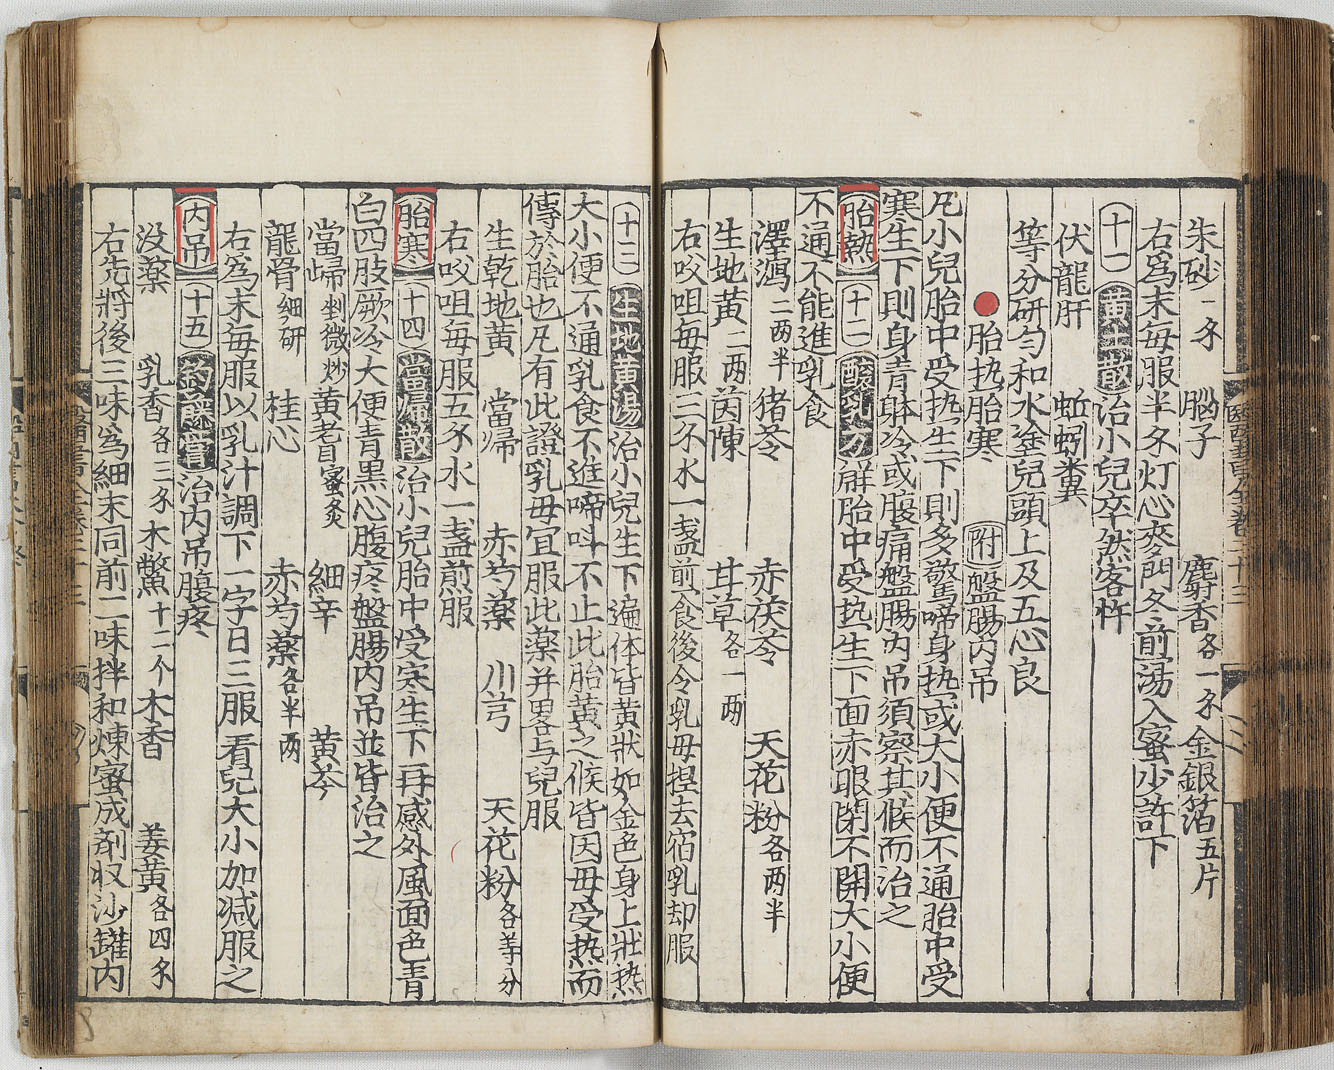 朱砂一錢 腦子 麝香各一錢 金銀箔五片
右爲末每服半錢灯心麥門冬煎湯入蜜少許下
十一 黃土散 治小兒卒然客忤
伏龍肝 蚯蚓糞
等分研勻和水塗兒頭上及五心良
●胎热胎寒 附 盤腸内吊
凡小兒胎中受热生下則多驚啼身热或大小便不通胎中受
寒生下則身青躰冷或腹痛盤腸内吊須察其候而治之
胎熱 十二 釀乳方 解胎中受热生下面赤眼閉不開大小便
不通不能進乳食
澤瀉二两半 猪苓 赤茯苓 天花粉各两半
生地黄二两 茵陳 甘草各一两
右㕮咀每服三錢水一盞煎食後令乳母捏去宿乳却服
十三 生地黄湯 治小兒生下遍体皆黄狀如金色身上壯热
大小便不通乳食不進啼呌不止此胎黄之候皆因母受热而
傳於胎也凡有此證乳母冝服此薬并畧与兒服
生乾地黄 當㷌 赤芍薬 川芎 天花粉各等分
右㕮咀每服五錢水一盞煎服
胎寒 十四 當㷌散 治小兒胎中受寒生下再感外風面色青
白四肢厥冷大便青黒心腹疼盤腸内吊並皆治之
當㷌剉微炒 黄芪蜜炙 細辛 黄芩
龍骨細研 桂心 赤芍薬各半两
右爲末每服以乳汁調下一字日三服看兒大小加减服之
内吊 十五 鈎藤膏 治内吊腹疼
没薬 乳香各三錢 木鱉十二个 木香 姜黄各四錢
右先將後三味爲細末同前二味拌和煉蜜成剤収沙罐内